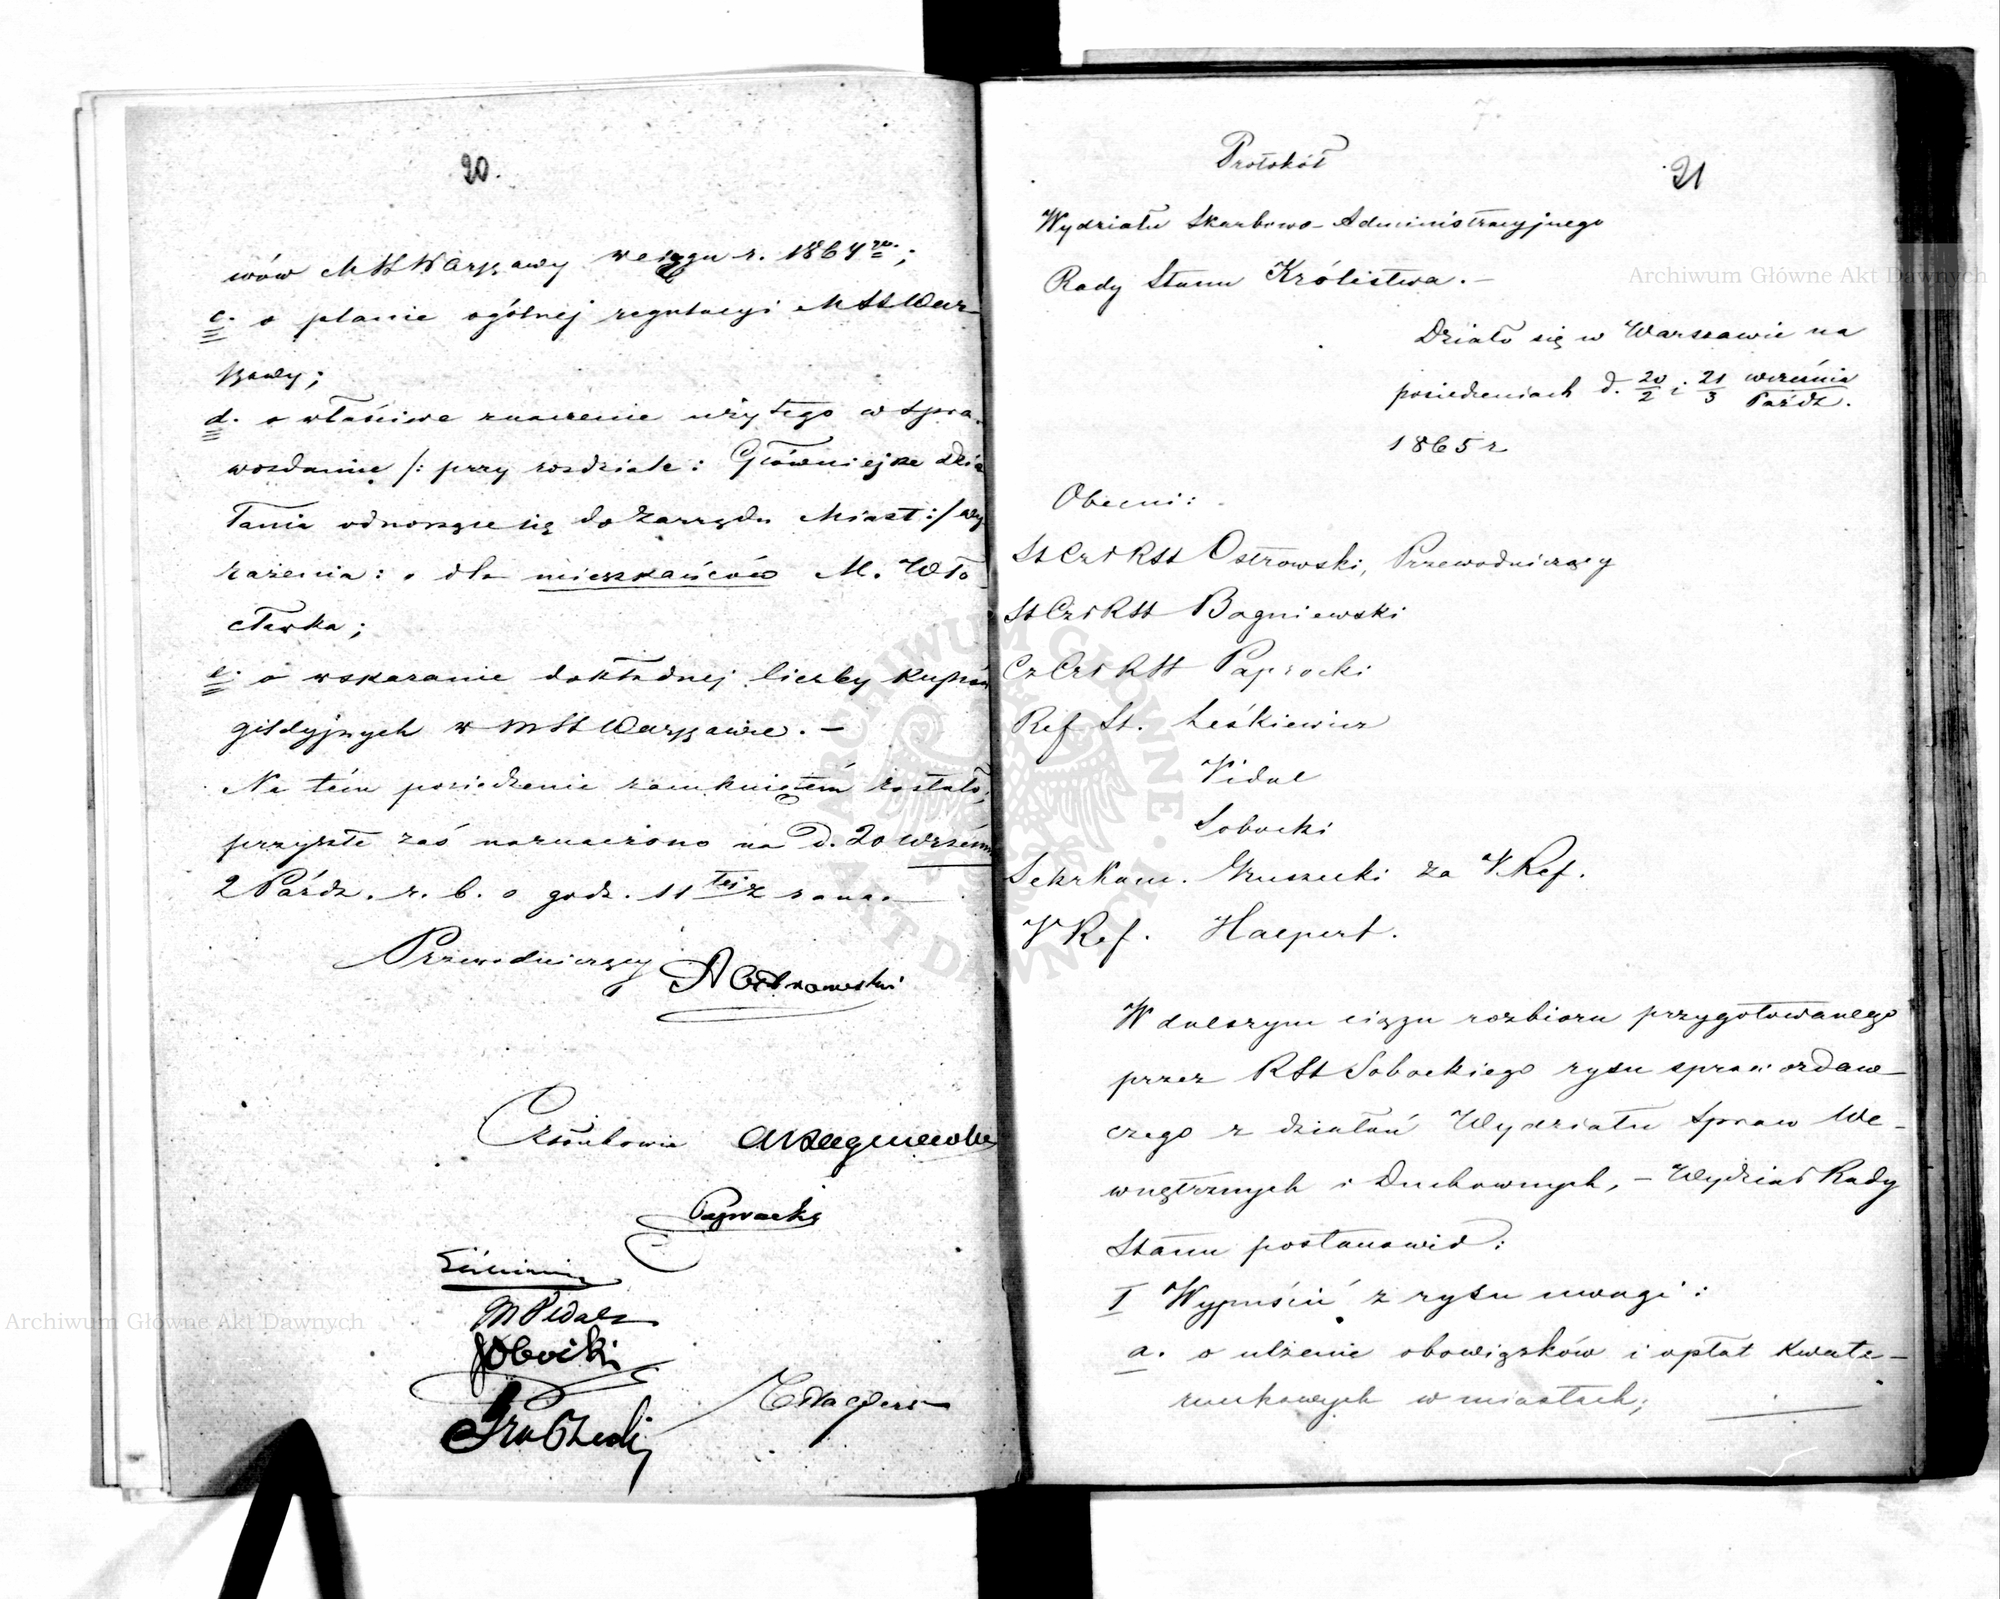 20.
wów M St Warszawy w ciągu r. 1864 go.;
c. o planie ogólnej regulacyi M St War-
szawy;
d. o właściwe znaczenie użytego w spra-
wozdaniu /: przy rozdziale: Główniejsze dzia
łania odnoszące się do Zarządu Miast :/ wy
rażenia: o dla mieszkańców M. Wło-
cławka;
e. o wskazanie dokładnej liczby kupców
gildyjnych w M St Warszawie. —
Na tém posiedzenie zamkniętém zostało,
przyszłe zaś naznaczono na d. 20 Wrześn
2 Paźdz. r. b. o godz. 11 tej z rana.
Przewodniczący A Ostrowski
Członkowie Bagniewski
Paprocki
M Vidal
Sobocki
Halpert
21
Protokół
Wydziału Skarbowo-Administracyjnego
Rady Stanu Królestwa. —
Działo się w Warszawie na
posiedzeniach d. 20/2 i 21/3 września/Paźdz.
1865 r
Obecni:
St Czł RSt Ostrowski, Przewodniczący
St Czł RSt Bagniewski
Cz Czł RSt Paprocki
Ref St. Leśkiewicz
Vidal
Sobocki
Sekr Kom. Gruszecki za V. Ref.
V Ref. Halpert.
W dalszym ciągu rozbioru przygotowanego
przez RSt Sobockiego rysu sprawozdaw-
czego z działań Wydziału Spraw We-
wnętrznych i Duchownych, — Wydział Rady
Stanu postanowił:
I Wypuścić z rysu uwagi:
a. o ulżenie obowiązków i opłat kwate-
runkowych w miastach;
Archiwum Główne Akt Dawnych
Archiwum Główne Akt Dawnych
ARCHIWUM GŁÓWNE AKT DAWNYCH